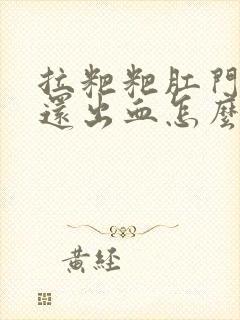 拉粑粑肛門
還出血怎麼
黃經